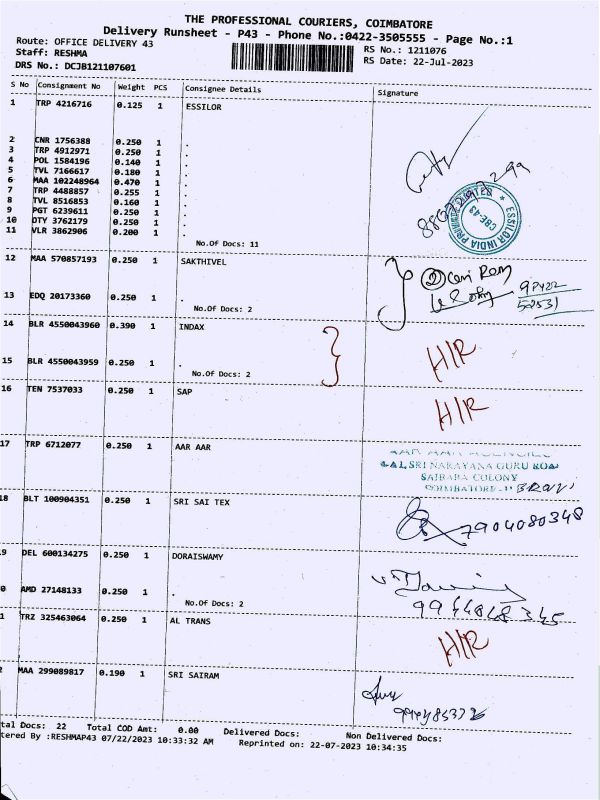 THE PROFESSIONAL COURIERS, COIMBATORE
Delivery Runsheet - P43 - Phone No.:0422-3505555 - Page No.:1
Route: OFFICE DELIVERY 43 RS No.: 1211076
Staff: RESHMA RS Date: 22-Jul-2023
DRS No.: DCJB121107601
S No Consignment No Weight PCS Consignee Details Signature
1 TRP 4216716 0.125 1 ESSILOR
2 CNR 1756388 0.250 1 .
3 TRP 4912971 0.250 1 .
4 POL 1584196 0.140 1 .
5 TVL 7166617 0.180 1 .
6 MAA 102248964 0.470 1 .
7 TRP 4488857 0.255 1 .
8 TVL 8516853 0.160 1 .
9 PGT 6239611 0.250 1 .
10 DTY 3762179 0.250 1 .
11 VLR 3862906 0.200 1 .
No.Of Docs: 11
ESSILOR INDIA PRIVATE LIMITED
CBE-43
12 MAA 570857193 0.250 1 SAKTHIVEL
13 EDQ 20173360 0.250 1 .
No.Of Docs: 2
14 BLR 4550043960 0.390 1 INDAX
H/R
15 BLR 4550043959 0.250 1 .
No.Of Docs: 2
16 TEN 7537033 0.250 1 SAP
H/R
17 TRP 6712077 0.250 1 AAR AAR
SRI NARAYANA GURU ROAD
SAIBABA COLONY
COIMBATORE
18 BLT 100904351 0.250 1 SRI SAI TEX
7904080348
9 DEL 600134275 0.250 1 DORAISWAMY
0 AMD 27148133 0.250 1 .
No.Of Docs: 2
9944848345
1 TRZ 325463064 0.250 1 AL TRANS
H/R
2 MAA 299089817 0.190 1 SRI SAIRAM
tal Docs: 22 Total COD Amt: 0.00 Delivered Docs: Non Delivered Docs:
tered By :RESHMAP43 07/22/2023 10:33:32 AM Reprinted on: 22-07-2023 10:34:35